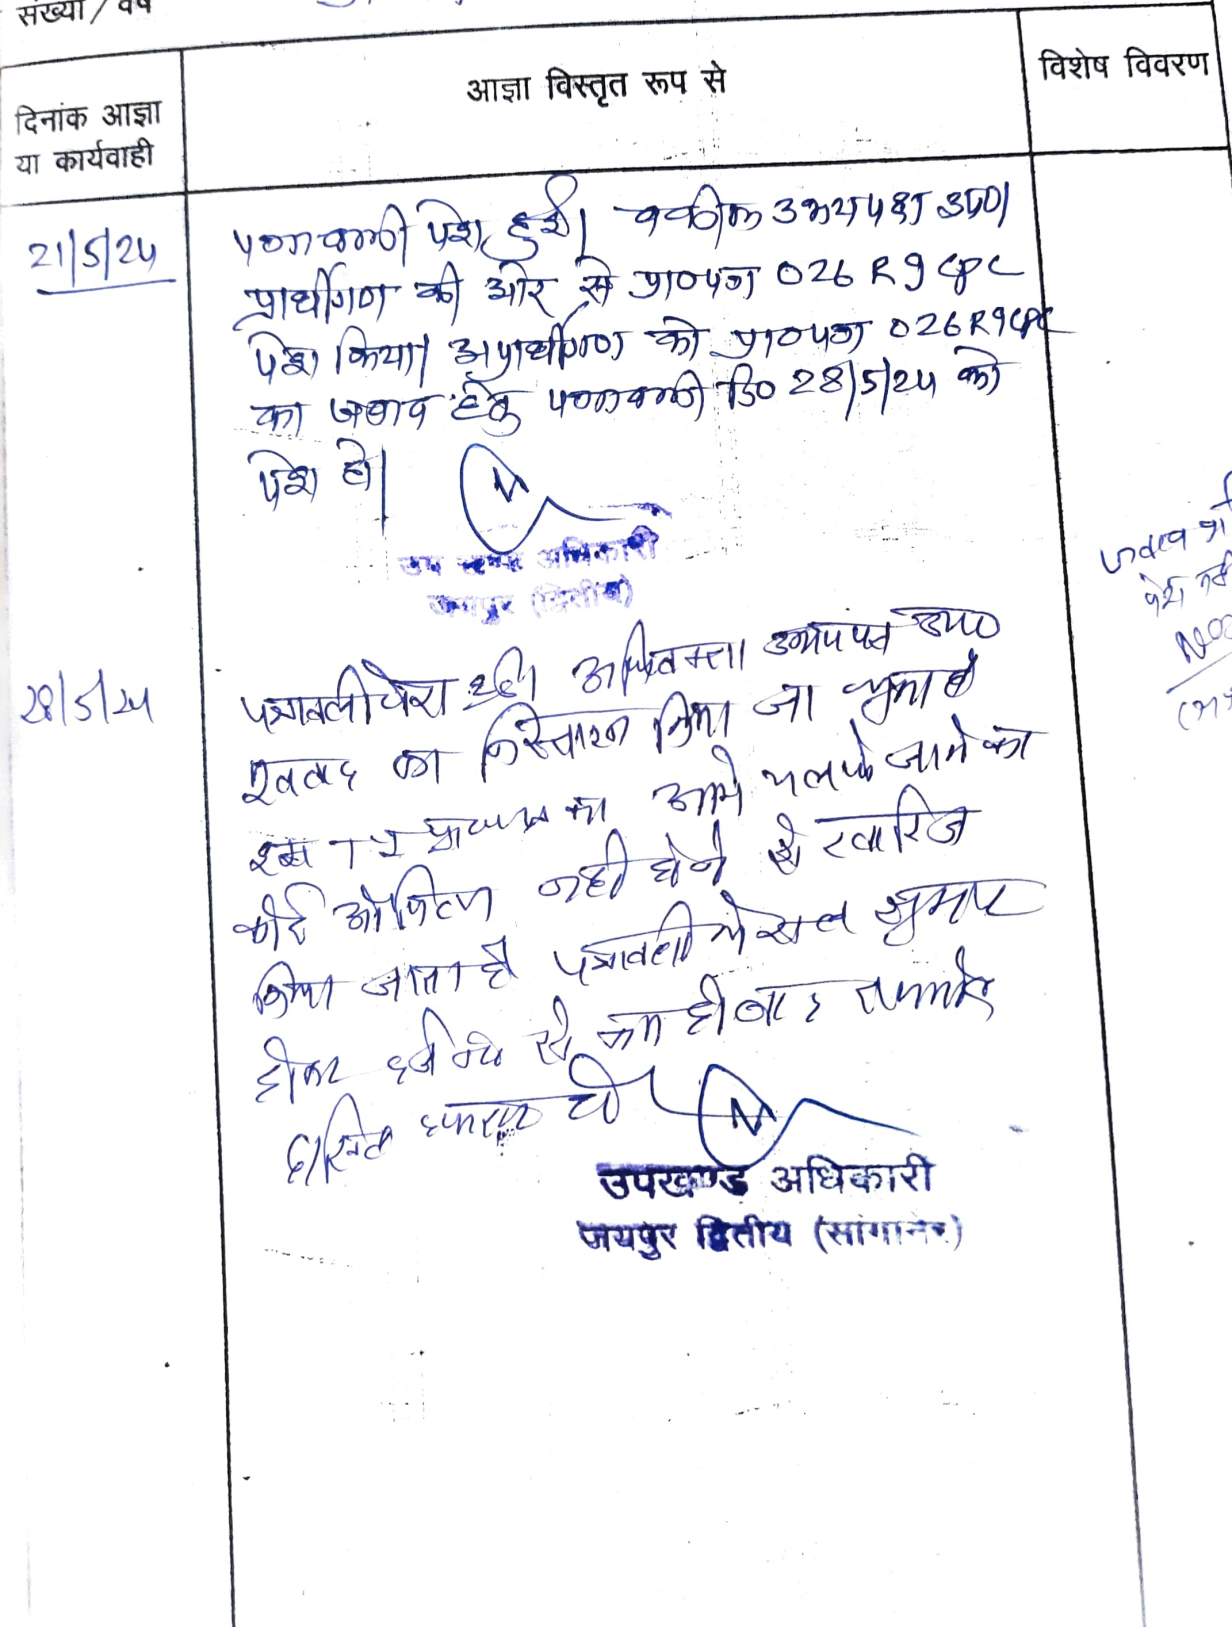 संख्या / वर्ष
दिनांक आज्ञा
या कार्यवाही
आज्ञा विस्तृत रूप से
विशेष विवरण
21/5/24
पत्रावली पेश हुई। वकील उभयपक्ष उप0।
प्रार्थीगण की ओर से प्रा0पत्र O26 R9 CPC
पेश किया। अप्रार्थीगण को प्रा0पत्र O26R9CPC
का जवाब हेतु पत्रावली दि0 28/5/24 को
पेश हो।
उप खण्ड अधिकारी
जयपुर (द्वितीय)
28/5/24
पत्रावली पेश हुई। अधिवक्ता उभयपक्ष उप0
का निस्तारण किया जा चुका है
TI का आगे चलाये जाने का
कोई औचित्य नहीं होने से खारिज
किया जाता है पत्रावली फैसल शुमार
होकर से कम हो बाद
दाखिल दफ्तर हो
उपखण्ड अधिकारी
जयपुर द्वितीय (सांगानेर)
जवाब
पेश